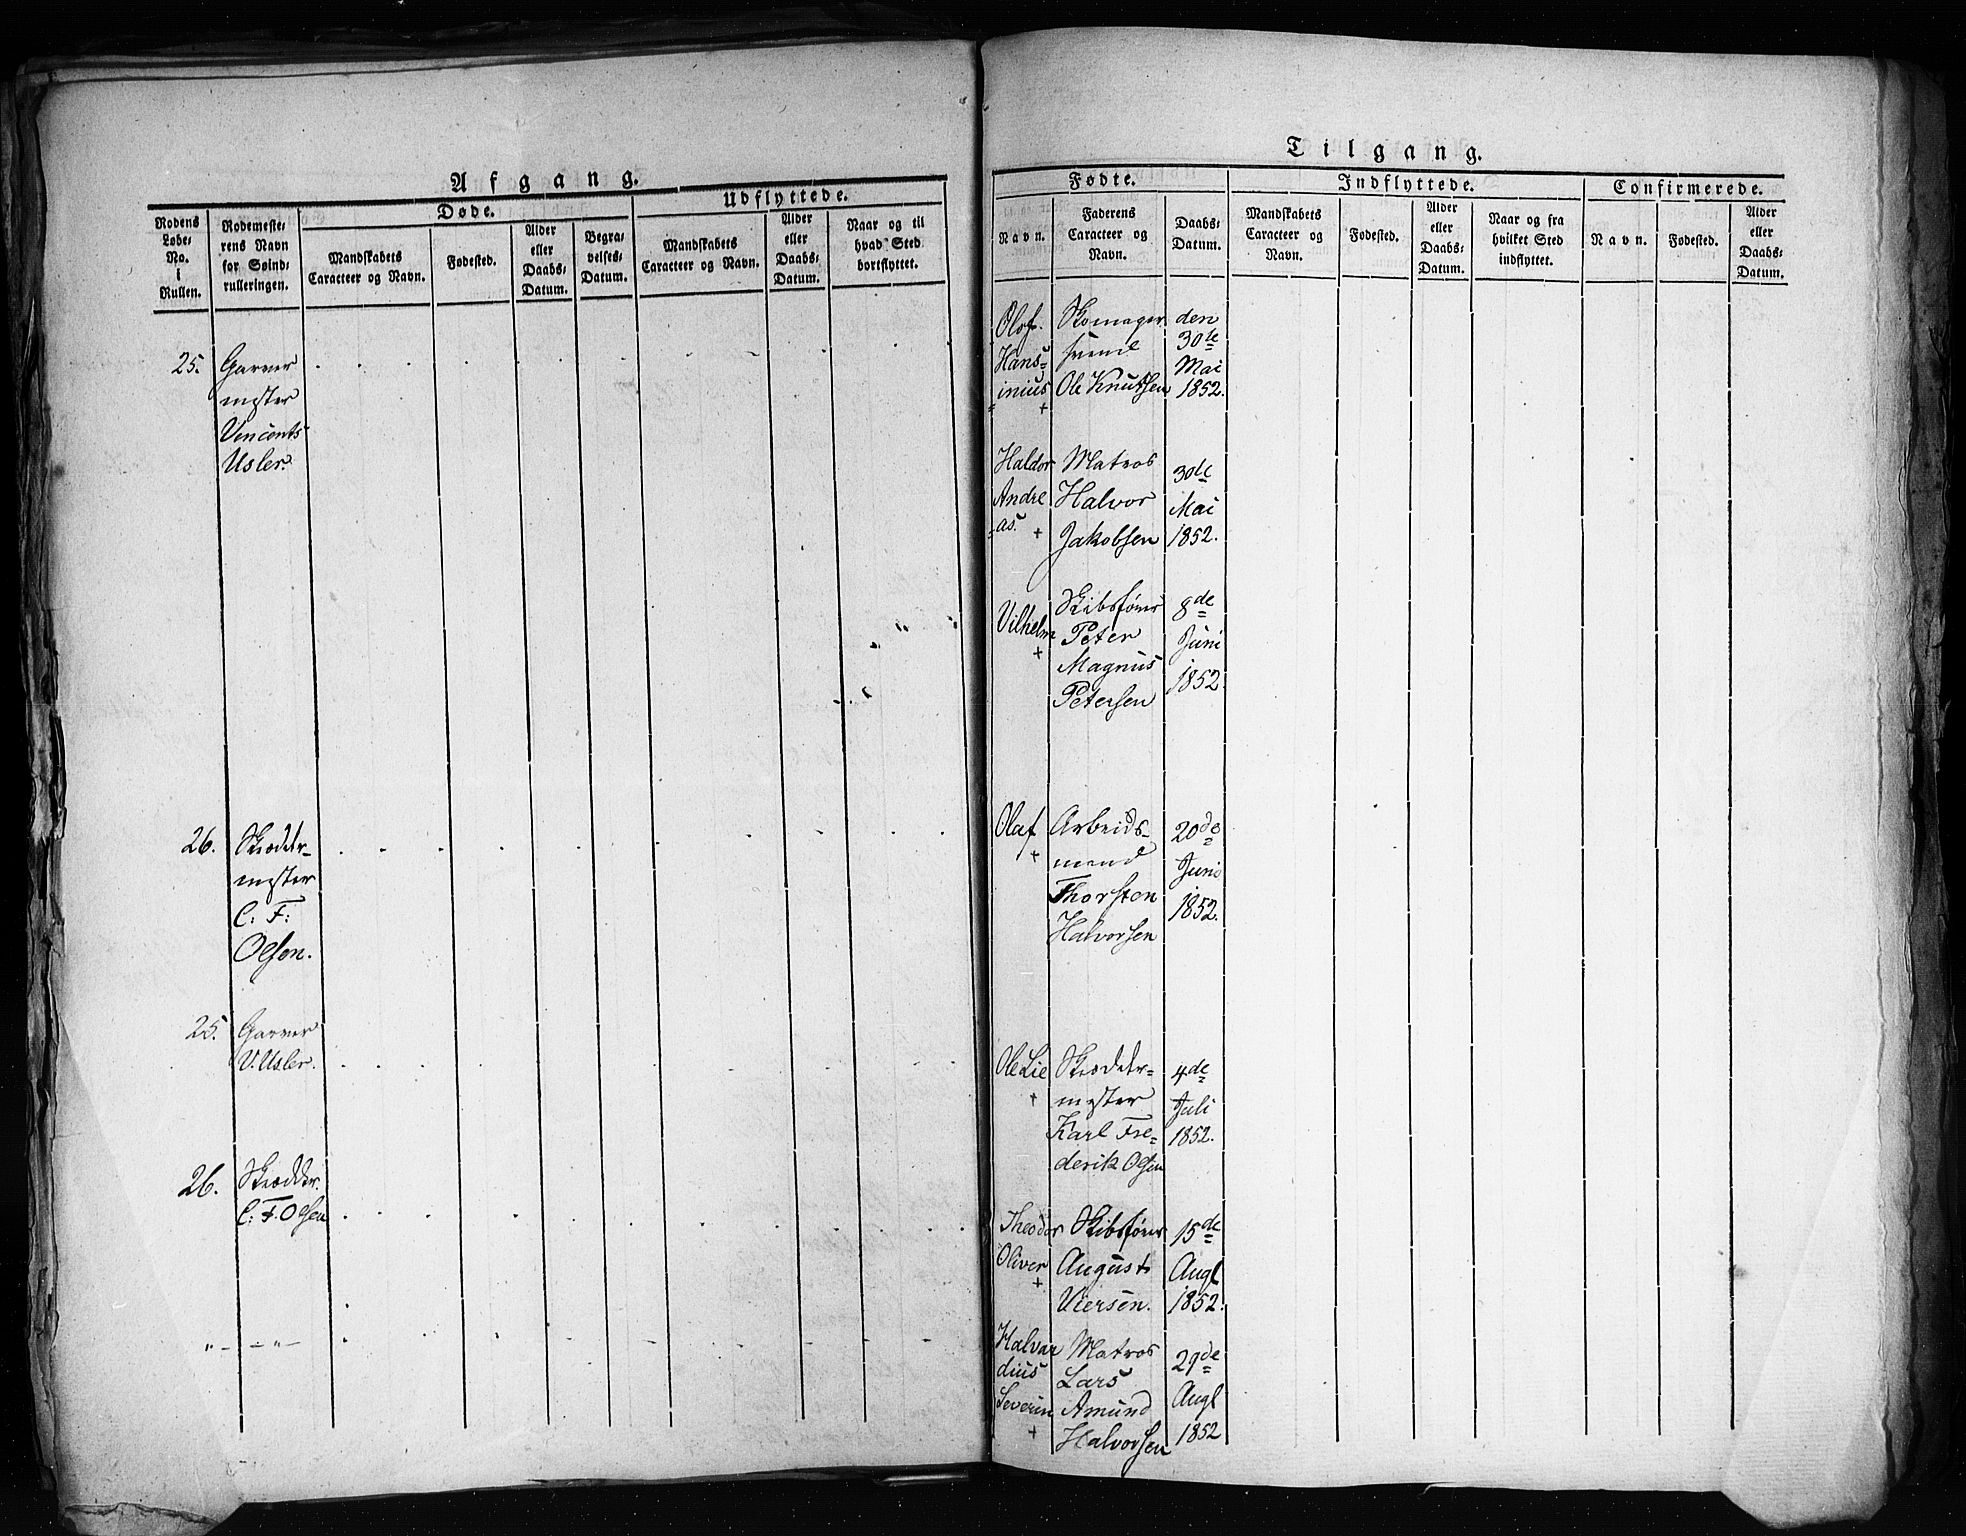 Afgang.
Døde.
Udflyttede.
Rodens
Løbe-
No.
i
Rullen.
Rodemeste-
rens Navn
for Søind-
rulleringen.
Mandskabets
Caracteer og Navn.
Fødested.
Alder
eller
Daabs-
Datum.
Begra-
velses-
Datum.
Mandskabets
Caracteer og Navn.
Alder
eller
Daabs-
Datum.
Naar og til
hvad Sted
bortflyttet.
25.
Garver
mester
Vincents
Usler.
26.
Skrædder-
mester
C: F:
Olsen.
25.
Garver
V. Usler.
26.
Skrædder.
C: F. Olsen
" — " —
Tilgang.
Fødte.
Indflyttede.
Confirmerede.
Navn.
Faderens
Caracteer og
Navn.
Daabs-
Datum.
Mandskabets
Caracteer og
Navn.
Fødested.
Alder
eller
Daabs-
Datum.
Naar og fra
hvilket Sted
indflyttet.
Navn.
Fødested.
Alder
eller
Daabs-
Datum.
Olof.
Hans-
inius
+
Skomager
svend
Ole Knutsen
den
30te
Mai
1852.
Haldor
Andre
as.
+
Matros
Halvor
Jakobsen
30te
Mai
1852.
Vilhelm
+
Skibsfører
Peter
Magnus
Petersen
8de
Juni
1852.
Olaf
+
Arbeids-
mand
Thorsten
Halvorsen
20de
Juni
1852.
Ole Lie
+
Skrædder-
mester
Karl Fre-
derik Olsen
4de
Juli
1852.
Theodor
Oliver
+
Skibsfører
August
Viersen.
15de
Augl
1852.
Halvar
dius
Severin
+
Matros
Lars
Amund
Halvorsen
29de
Augl
1852